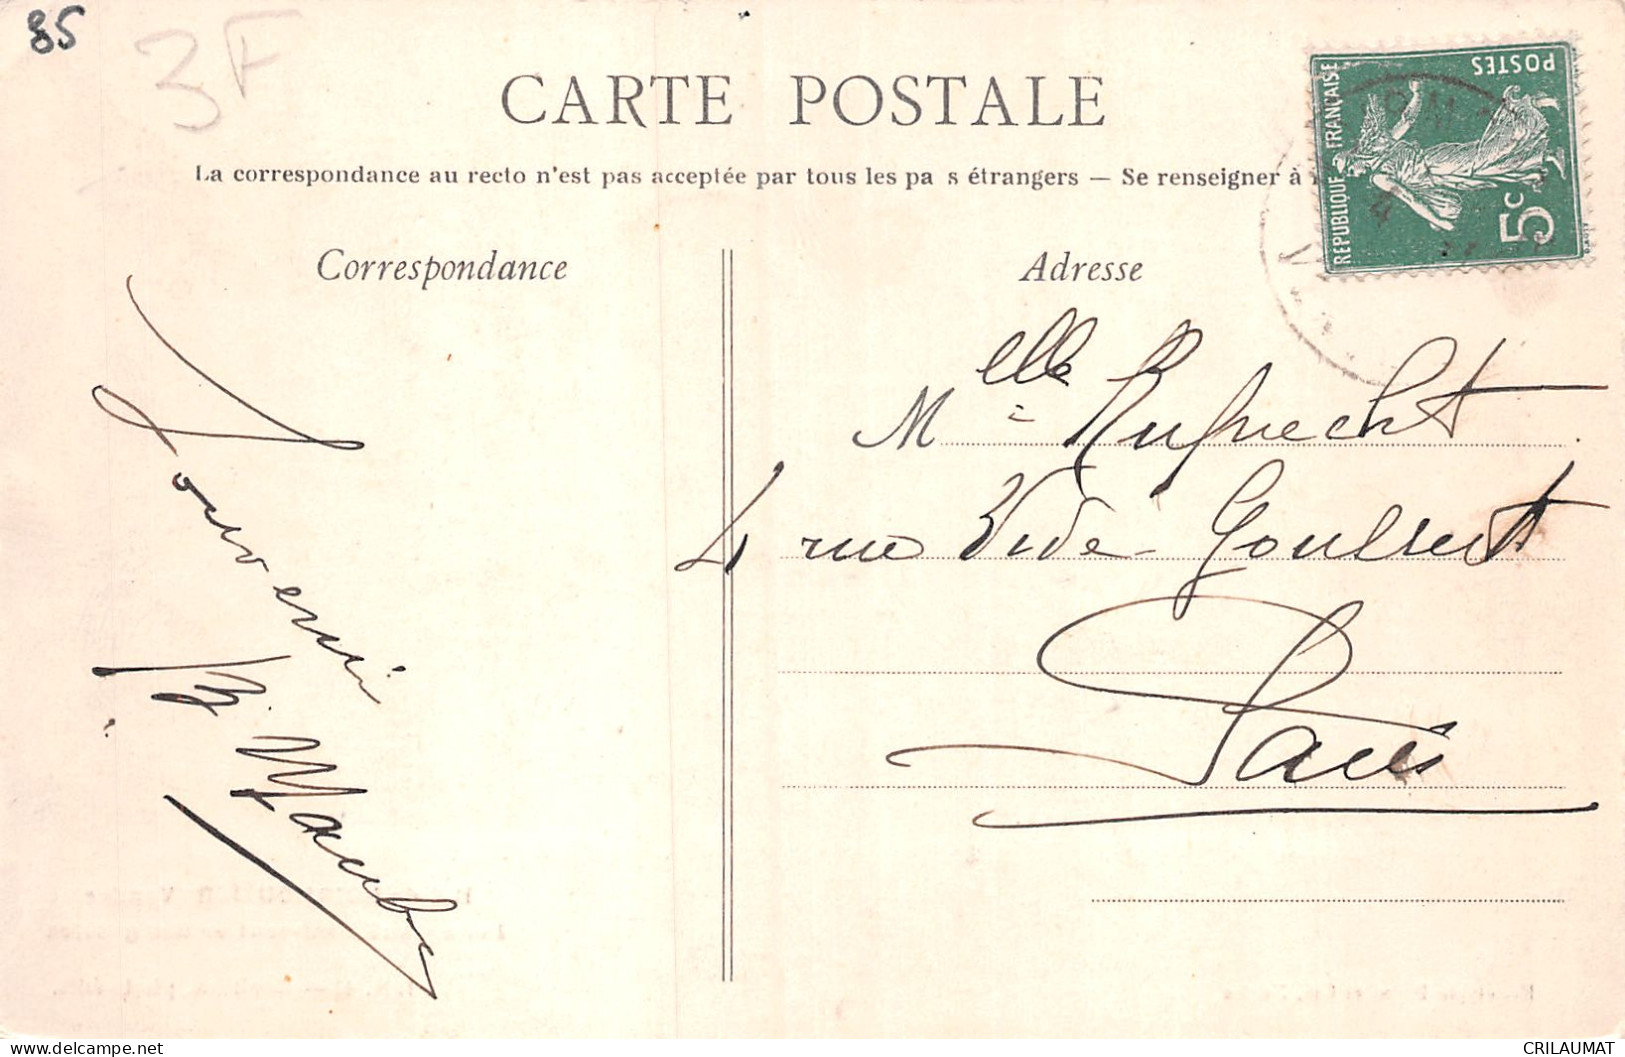 85
3F
CARTE POSTALE
La correspondance au recto n'est pas acceptée par tous les pa s étrangers — Se renseigner à
REPUBLIQUE FRANÇAISE
POSTES
5c
4
Correspondance
Adresse
Melle Ruprecht
4 rue Vide Gousset
Paris
Souvenir
B. Maube
CRILAUMAT